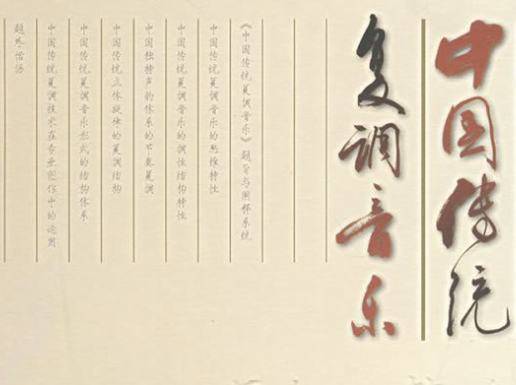 中国传统
复调音乐
《中国传统复调音乐》题旨与阐释系统
中国传统复调音乐的思维特性
中国传统复调音乐的调性结构特性
中国独特声韵体系的节奏复调
中国传统立体旋律的复调结构
中国传统复调音乐形式的结构体系
中国传统复调技术在专业创作中的运用
题外·話语